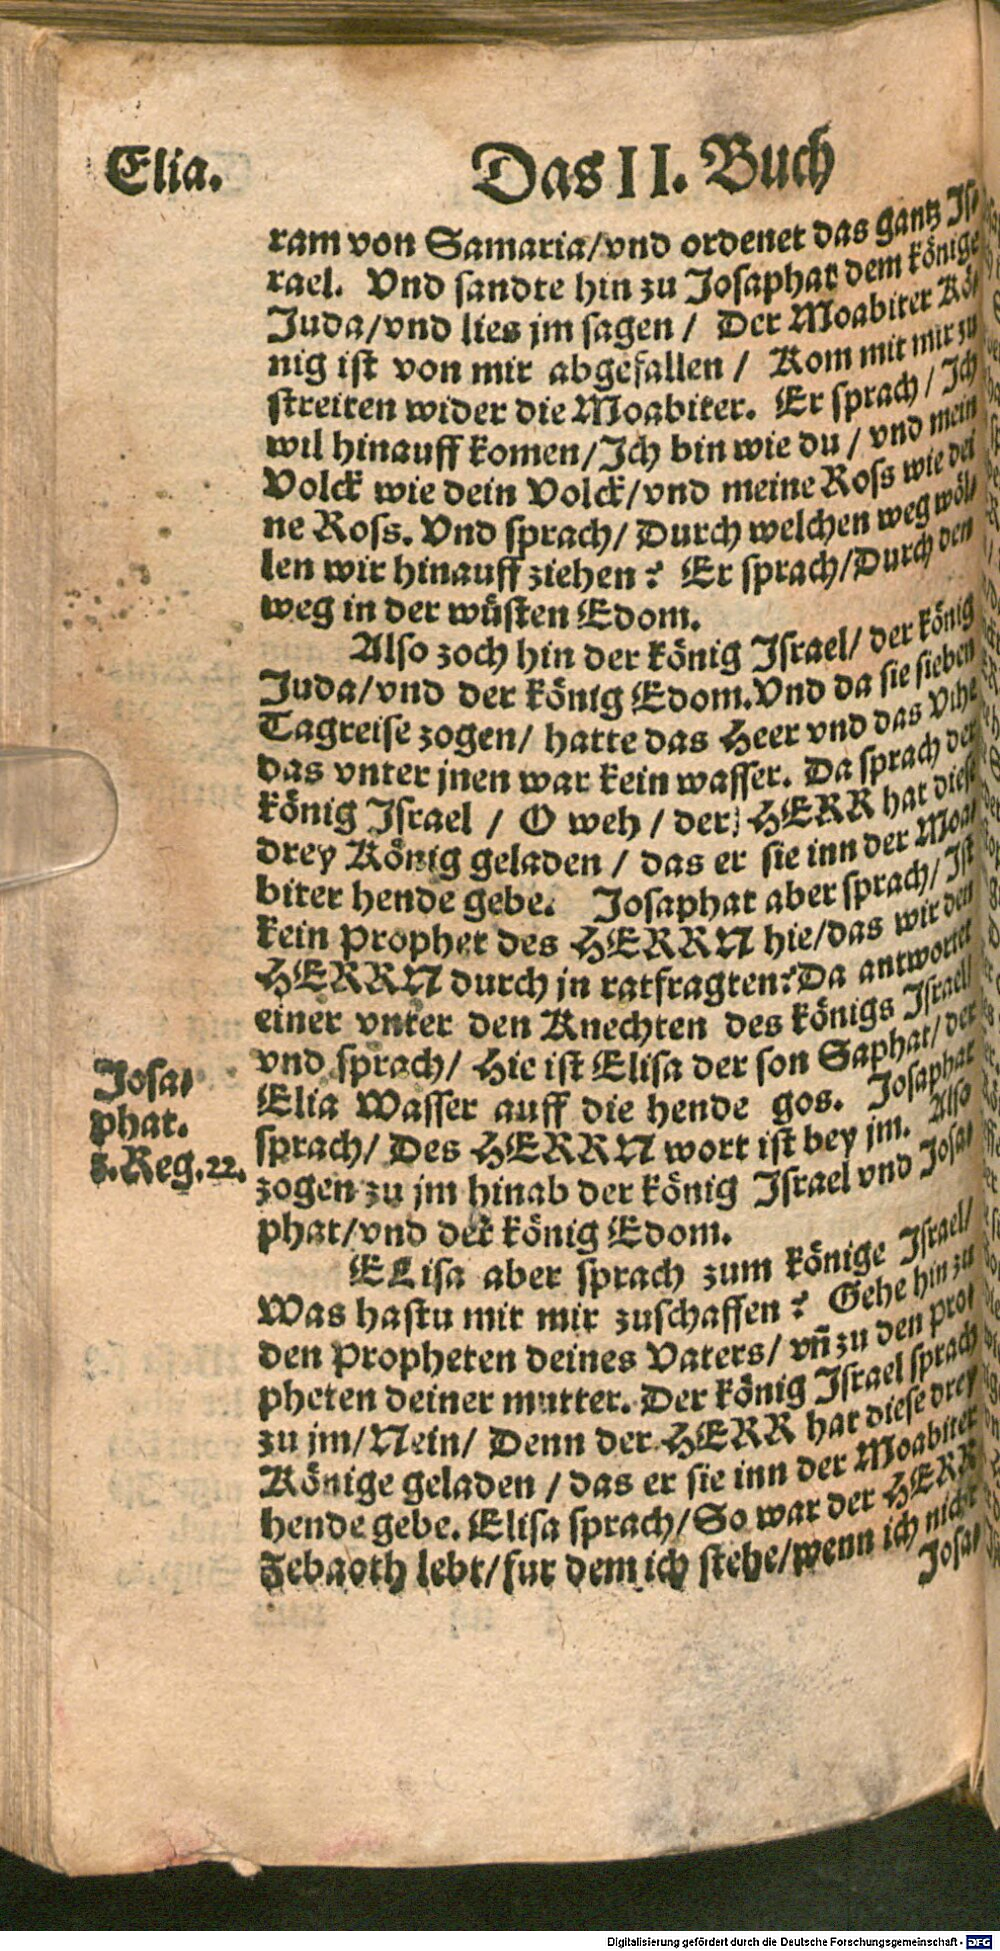 Elia.
Das II. Buch
ram von Samaria/vnd ordenet das gantz Is⸗
rael. Vnd sandte hin zu Josaphat dem könige
Juda/vnd lies jm sagen / Der Moabiter Kö⸗
nig ist von mir abgefallen / Kom mit mir zu
streiten wider die Moabiter. Er sprach / Ich
wil hinauff komen/Ich bin wie du / vnd mein
Volck wie dein Volck/vnd meine Ross wie dei
ne Ross. Vnd sprach/ Durch welchen weg wöl⸗
len wir hinauff ziehen? Er sprach/Durch den
weg in der wüsten Edom.
Also zoch hin der könig Israel/ der könig
Juda/vnd der könig Edom.Vnd da sie sieben
Tagreise zogen/ hatte das Heer vnd das Vihe
das vnter jnen war kein wasser. Da sprach der
könig Israel / O weh / der HERR hat diese
drey König geladen / das er sie inn der Moa⸗
biter hende gebe. Josaphat aber sprach/ Ist
kein Prophet des HERRN hie/das wir den
HERRN durch jn ratfragten?Da antwortet
einer vnter den Knechten des königs Israel/
vnd sprach/ Hie ist Elisa der son Saphat/ der
Elia Wasser auff die hende gos. Josaphat
sprach/ Des HERRN wort ist bey jm. Also
zogen zu jm hinab der könig Israel vnd Josa⸗
phat/vnd der könig Edom.
Josa⸗
phat.
3.Reg.22.
ELisa aber sprach zum könige Israel/
Was hastu mit mir zuschaffen? Gehe hin zu
den Propheten deines Vaters/ vn̄ zu den Pro⸗
pheten deiner mutter. Der könig Israel sprach
zu jm/Nein/ Denn der HERR hat diese drey
Könige geladen / das er sie inn der Moabiter
hende gebe. Elisa sprach/So war der HERR
Zebaoth lebt/fur dem ich stehe/wenn ich nicht
Josa⸗
Digitalisierung gefördert durch die Deutsche Forschungsgemeinschaft - DFG